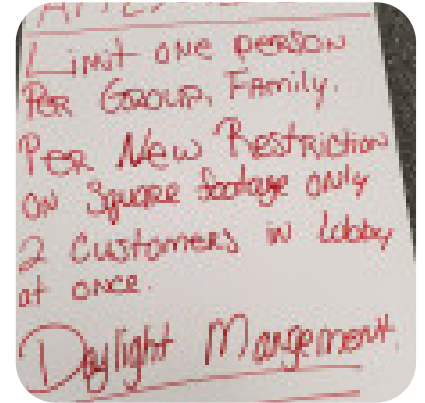 Limit one person
Per Group, Family.
Per New Restriction
on Square footage only
2 Customers in lobby
at once.
Daylight Mangement.